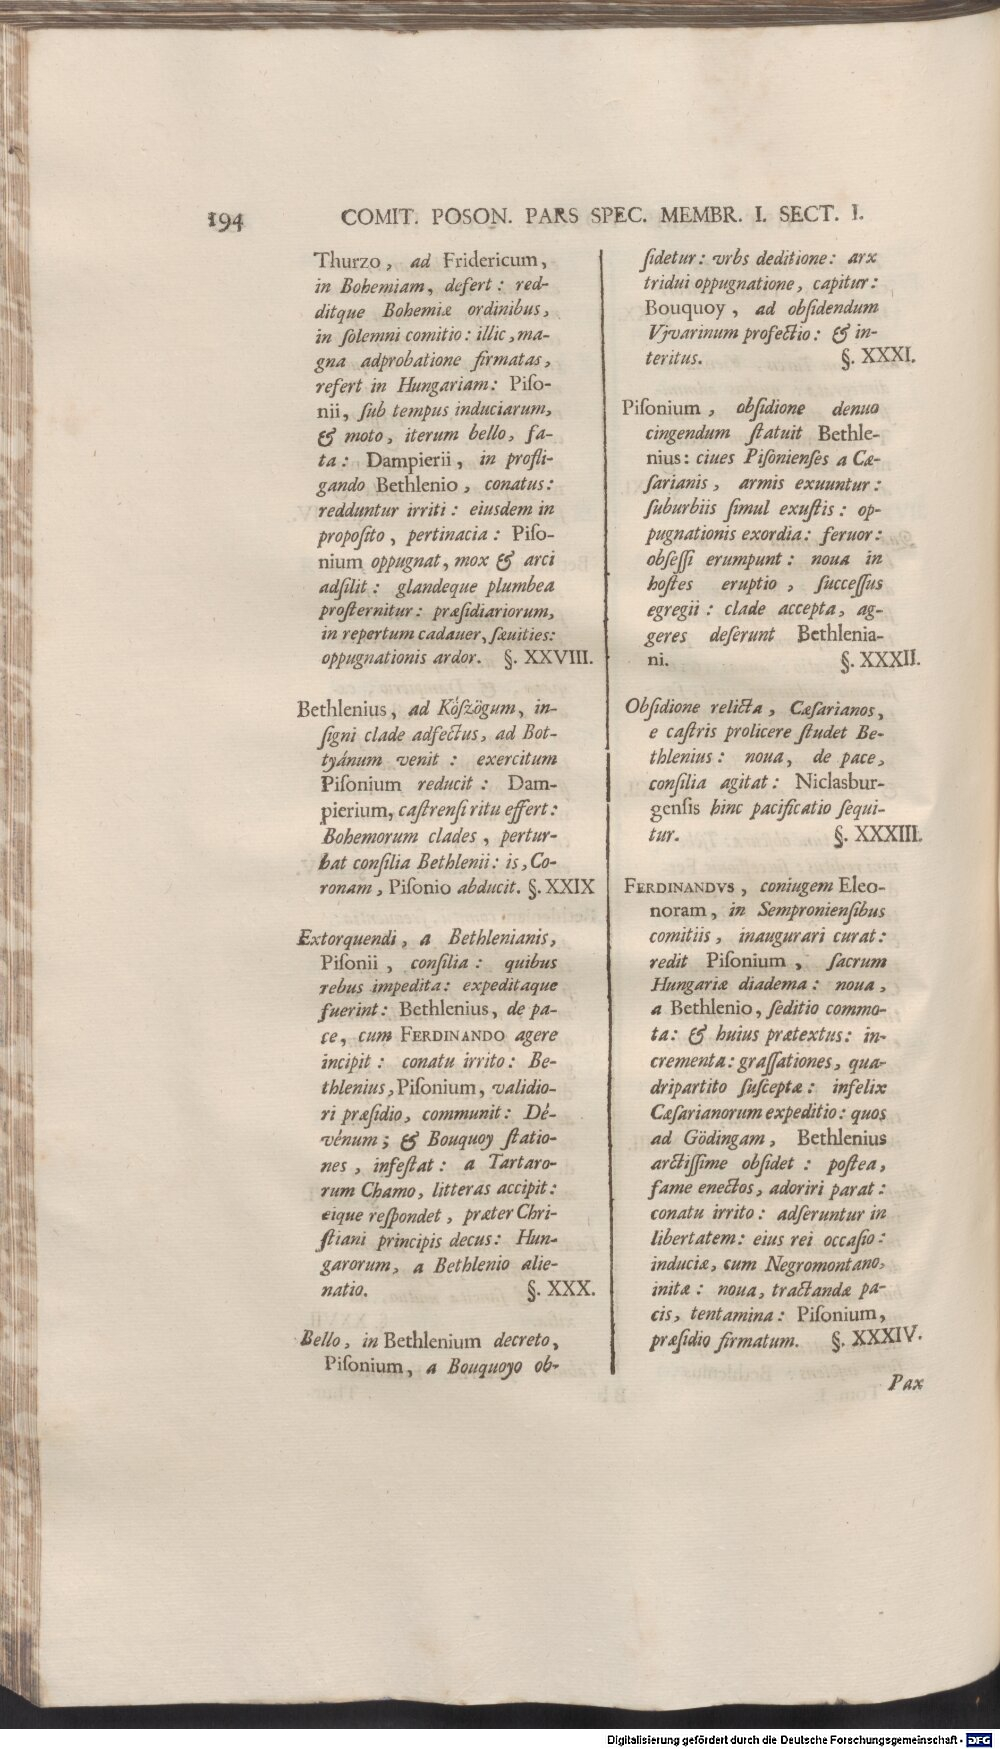 194 COMIT. POSON. PARS SPEC. MEMBR. I. SECT. I.
Thurzo, ad Fridericum,
in Bohemiam, defert: red-
ditque Bohemiæ ordinibus,
in ſolemni comitio: illic, ma-
gna adprobatione firmatas,
refert in Hungariam: Piſo-
nii, ſub tempus induciarum,
& moto, iterum bello, fa-
ta: Dampierii, in profli-
gando Bethlenio, conatus:
redduntur irriti: eiusdem in
propoſito, pertinacia: Piſo-
nium oppugnat, mox & arci
adſilit: glandeque plumbea
proſternitur: præſidiariorum,
in repertum cadauer, ſæuities:
oppugnationis ardor. §. XXVIII.
Bethlenius, ad Kőſzögum, in-
ſigni clade adfectus, ad Bot-
tyánum venit: exercitum
Piſonium reducit: Dam-
pierium, caſtrenſi ritu effert:
Bohemorum clades, pertur-
bat conſilia Bethlenii: is, Co-
ronam, Piſonio abducit. §. XXIX
Extorquendi, a Bethlenianis,
Piſonii, conſilia: quibus
rebus impedita: expeditaque
fuerint: Bethlenius, de pa-
ce, cum FERDINANDO agere
incipit: conatu irrito: Be-
thlenius, Piſonium, validio-
ri præſidio, communit: Dé-
vénum; & Bouquoy ſtatio-
nes, infeſtat: a Tartaro-
rum Chamo, litteras accipit:
eique reſpondet, præter Chri-
ſtiani principis decus: Hun-
garorum, a Bethlenio alie-
natio. §. XXX.
Bello, in Bethlenium decreto,
Piſonium, a Bouquoyo ob-
ſidetur: vrbs deditione: arx
tridui oppugnatione, capitur:
Bouquoy, ad obſidendum
Vjvarinum profectio: & in-
teritus. §. XXXI.
Piſonium, obſidione denuo
cingendum ſtatuit Bethle-
nius: ciues Piſonienſes a Cæ-
ſarianis, armis exuuntur:
ſuburbiis ſimul exuſtis: op-
pugnationis exordia: feruor:
obſeſſi erumpunt: noua in
hoſtes eruptio, ſucceſſus
egregii: clade accepta, ag-
geres deſerunt Bethlenia-
ni. §. XXXII.
Obſidione relicta, Cæſarianos,
e caſtris prolicere ſtudet Be-
thlenius: noua, de pace,
conſilia agitat: Niclasbur-
genſis hinc pacificatio ſequi-
tur. §. XXXIII.
FERDINANDVS, coniugem Eleo-
noram, in Sempronienſibus
comitiis, inaugurari curat:
redit Piſonium, ſacrum
Hungariæ diadema: noua,
a Bethlenio, ſeditio commo-
ta: & huius prætextus: in-
crementa: graſſationes, qua-
dripartito ſuſceptæ: infelix
Cæſarianorum expeditio: quos
ad Gödingam, Bethlenius
arctiſſime obſidet: poſtea,
fame enectos, adoriri parat:
conatu irrito: adſeruntur in
libertatem: eius rei occaſio:
induciæ, cum Negromontano,
initæ: noua, tractandæ pa-
cis, tentamina: Piſonium,
præſidio firmatum. §. XXXIV.
Pax
Digitalisierung gefördert durch die Deutsche Forschungsgemeinschaft - DFG